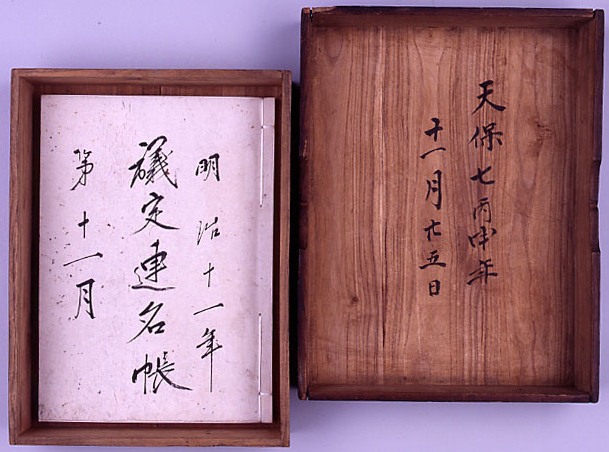 天保七丙申年
十一月廿五日
明治十一年
議定連名帳
第十一月